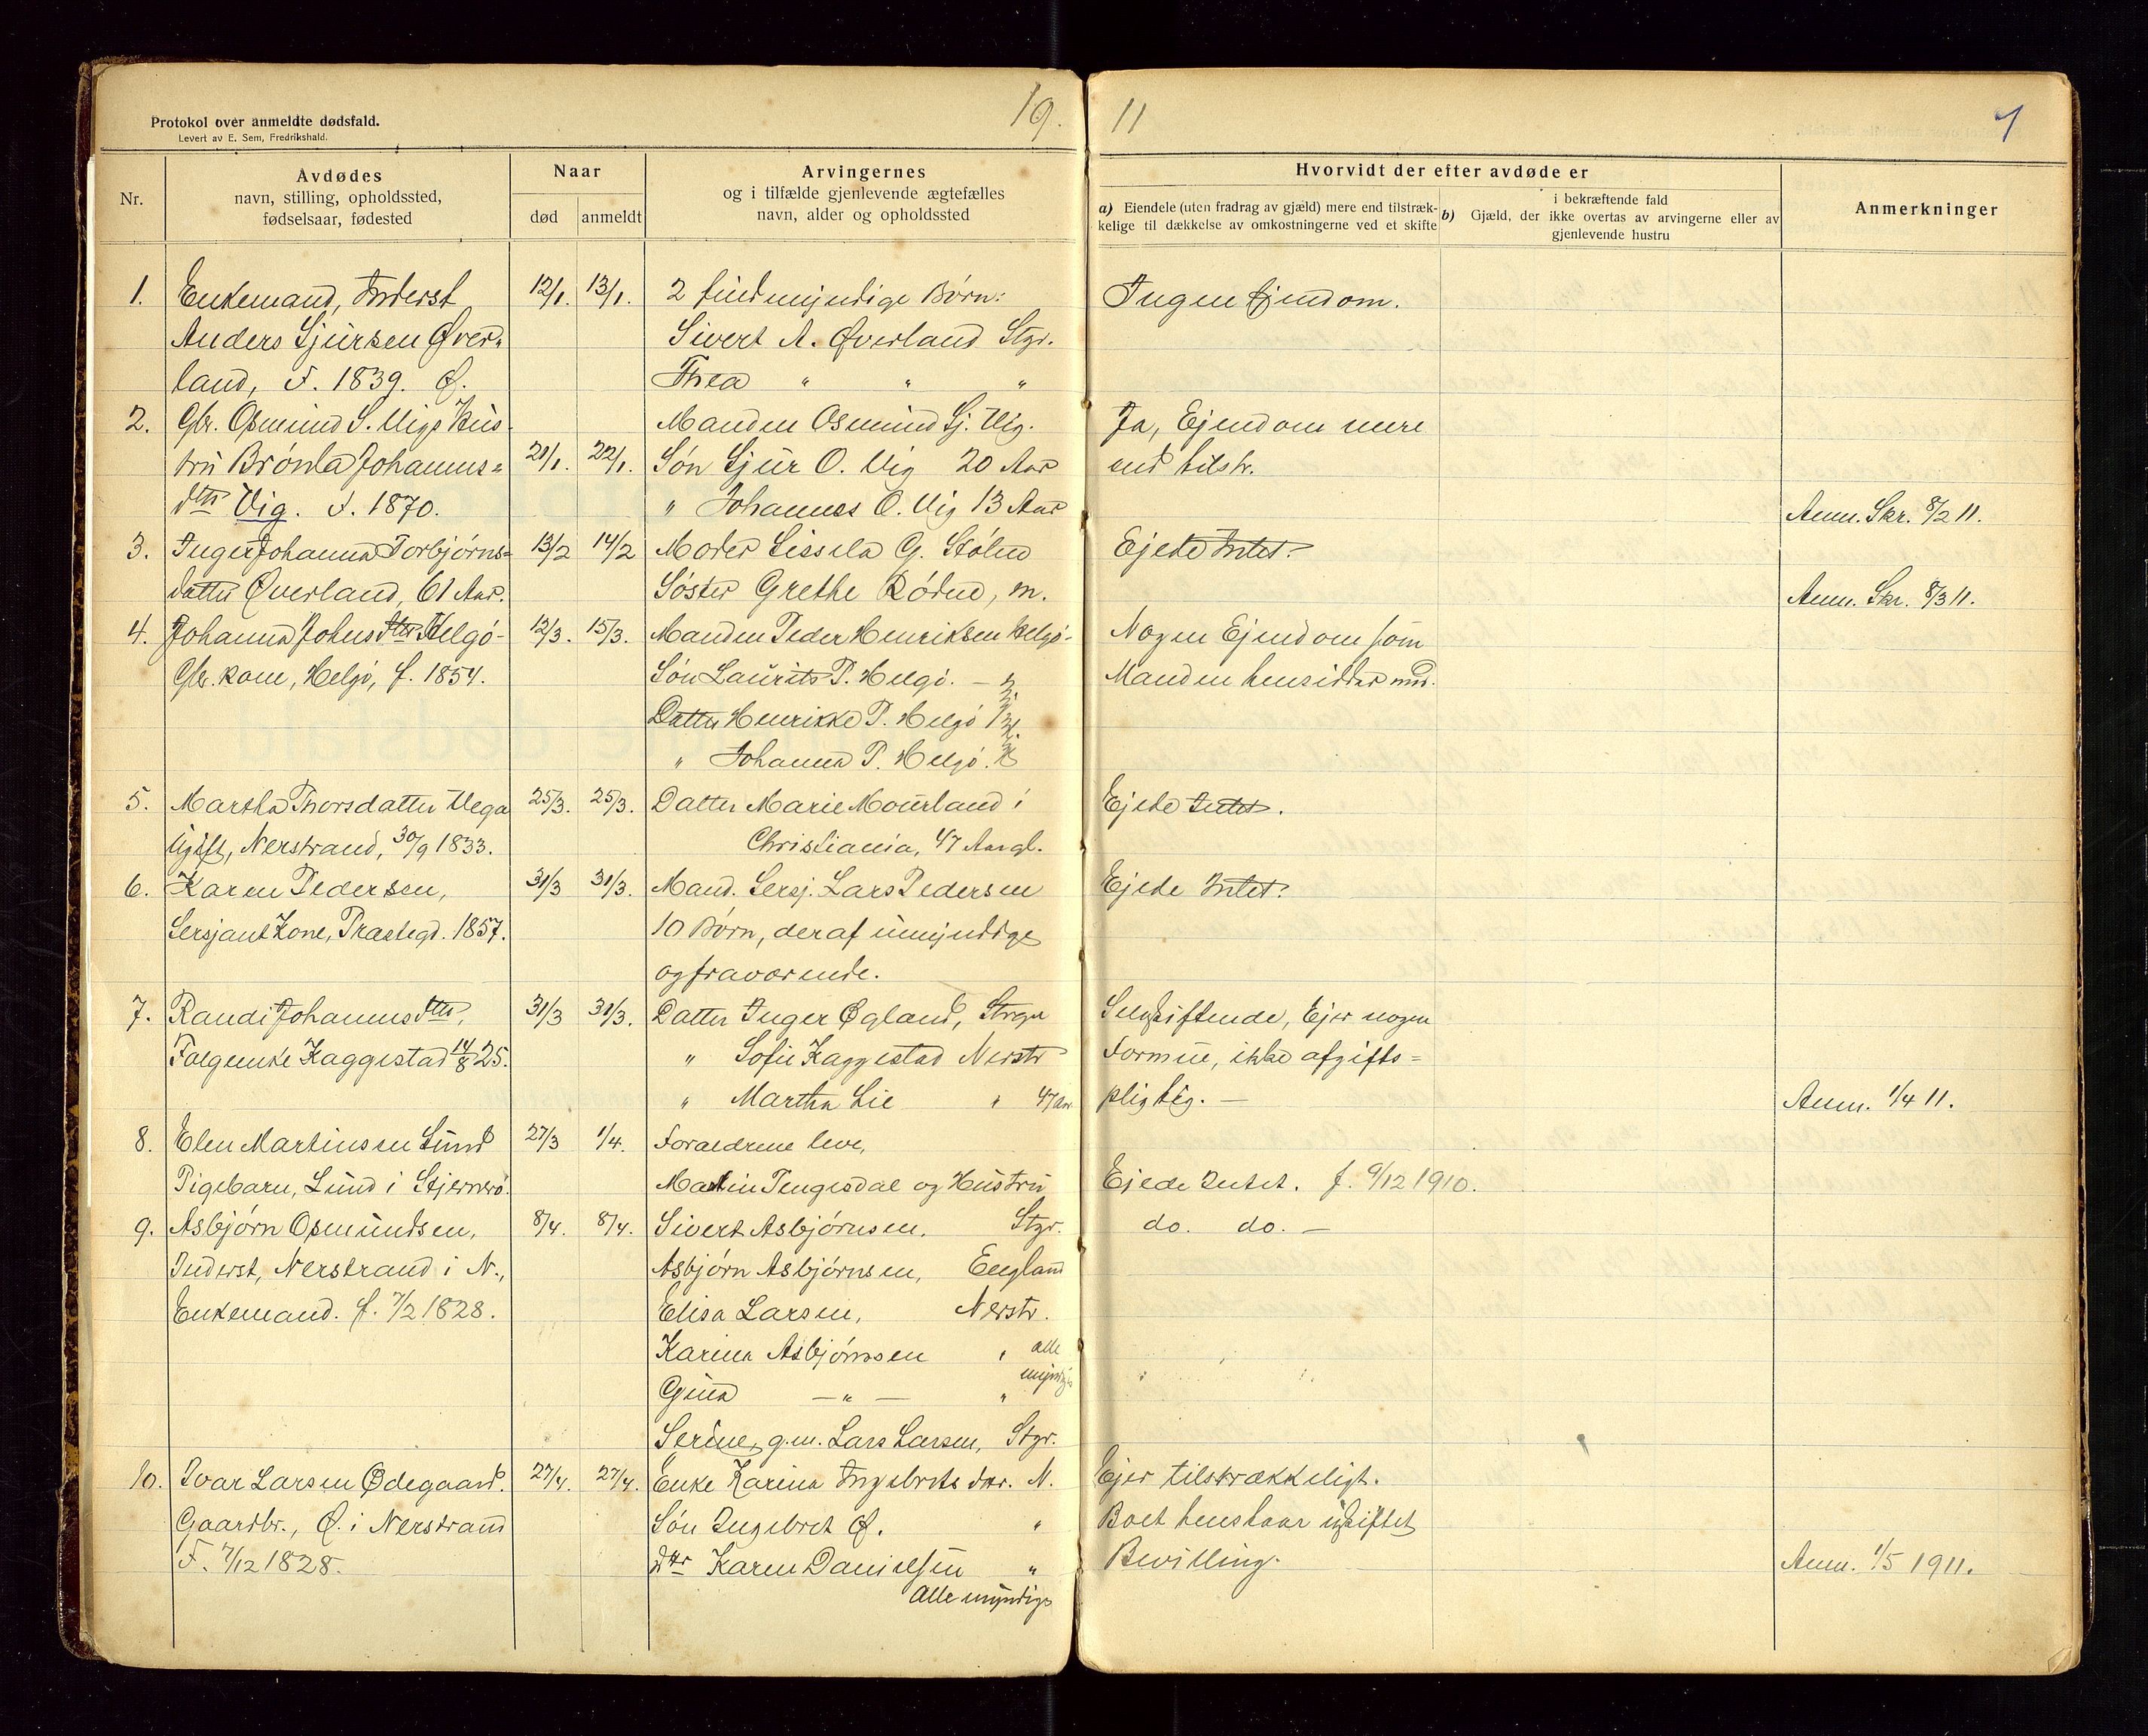 Protokol over anmeldte dødsfald.
Levert av E. Sem, Fredrikshald.
19.
11
7
Nr.
Avdødes
navn, stilling, opholdssted,
fødselsaar, fødested
Naar
død
anmeldt
Arvingernes
og i tilfælde gjenlevende ægtefælles
navn, alder og opholdssted
Hvorvidt der efter avdøde er
a) Eiendele (uten fradrag av gjæld) mere end tilstræk-
kelige til dækkelse av omkostningerne ved et skifte
i bekræftende fald
b) Gjæld, der ikke overtas av arvingerne eller av
gjenlevende hustru
Anmerkninger
1. Enkemand, Inderst 12/1. 13/1. 2 fuldmyndige Børn: Ingen Ejendom.
Anders Sjursen Øver- Sivert A. Øverland Stgr.
land, F. 1839. Ø. Thea " " "
2. Gbr. Osmund S. Vigs Hus- Manden Osmund Sj. Vig. Ja, Ejendom mere
tru Brønla Johannes- 21/1. 22/1. Søn Sjur O. Vig 20 Aar end tilstr.
dtr Vig. F. 1870. " Johannes O. Vig 13 Aar Anm. Skr. 8/2 11.
3. Inger Johanna Torbjørns- 13/2 14/2 Moder Sissela G. Stølen Ejede Intet.
datter Øverland, 61 Aar. Søster Grethe Røden, m. Anm. Skr. 8/3 11.
4. Johanna Johnsdtr Helgø- 12/3. 15/3. Manden Peder Henriksen Helgø- Nogen Ejendom som
Gbr. kone, Helgø, f. 1854. Søn Laurits P. Helgø. Manden hensidder med.
Datter Henrikke P. Helgø
" Johanna P. Helgø.
5. Martha Thorsdatter Vega 25/3. 25/3. Datter Marie Mourland i Ejede Intet.
Ugift, Nerstrand, 30/9 1833. Christiania, 47 Aar gl.
6. Karen Pedersen, 31/3 31/3. Mand. Sersj. Lars Pedersen Ejede Intet.
Sersjant Kone, Præstegd. 1857. 10 Børn, deraf umyndige
og fraværende.
7. Randi Johannesdtr, 31/3 31/3. Datter Inger Øgland, Selvskiftende, Ejer nogen
Folgenke Kaggestad 14/8 25. " Sofie Kaggestad Nerstr Formue, ikke afgifts-
" Martha Lie " 47 Aar pligtig. — Anm. 1/4 11.
8. Elen Martinsen Lund 27/3 1/4. Forældrene leve,
Pigebarn, Lund i Stjernerø. Martin Tengesdal og Hustru Ejede Intet. f. 9/12 1910.
9. Asbjørn Osmundsen, 8/4. 8/4. Sivert Asbjørnsen, Stgr. do. do. —
Inderst, Nerstrand i N., Asbjørn Asbjørnsen, England
Enkemand. f. 7/2 1828. Elisa Larsen, Nerstr.
Karina Asbjørnsen " alle
Gina — " — " myndige
Serine, g.m. Lars Larsen, Stgr.
10. Ivar Larsen Ødegaard. 27/4. 27/4. Enke Karina Ingebrets dtr. N. Ejer tilstrækkeligt.
Gaardbr., Ø. i Nerstrand Søn Ingebret Ø. " Boet henstaar uskiftet
F. 7/12 1828. Dtr Karen Danielsen " Bevilling. Anm. 1/5 1911.
Alle myndige